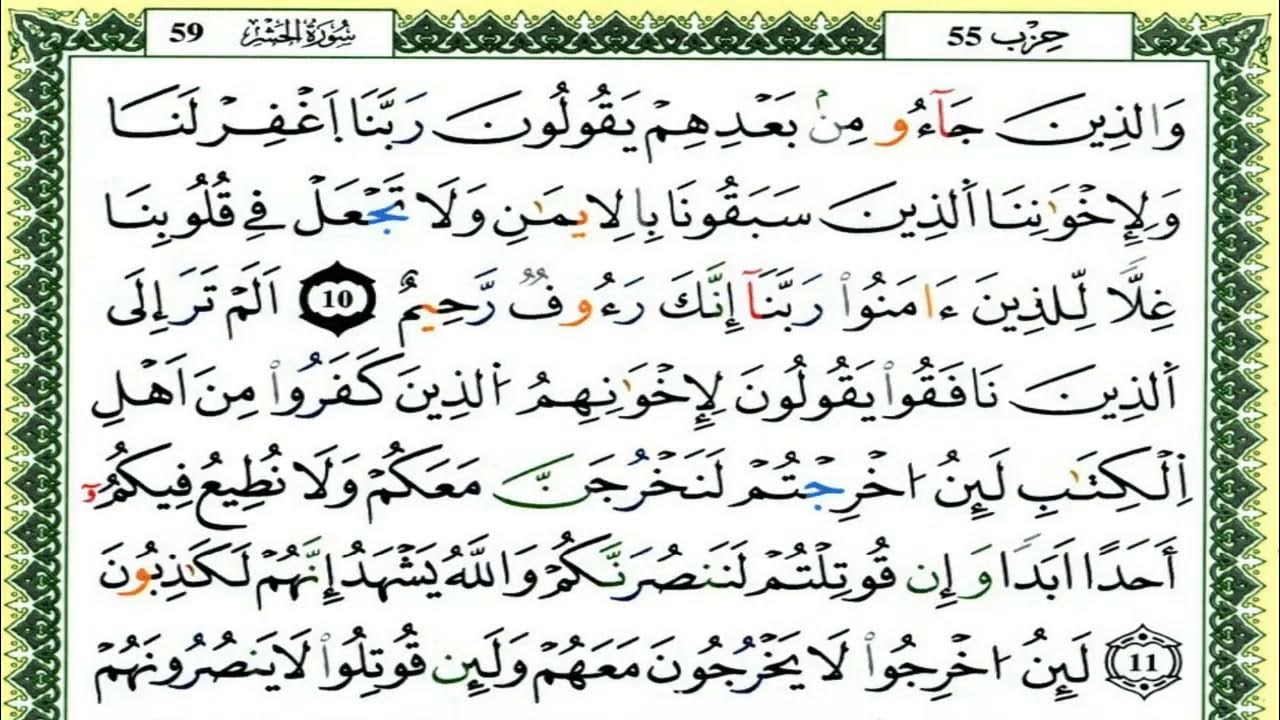 حِزْب 55
سُورَةُ الحَشْر 59
وَالذِينَ جَآءُو مِنۢ بَعْدِهِمْ يَقُولُونَ رَبَّنَا اَغْفِرْ لَنَا
وَلِإِخْوَٰنِنَا اَلذِينَ سَبَقُونَا بِالِايمَٰنِ وَلَا تَجْعَلْ فِي قُلُوبِنَا
غِلّٗا لِّلذِينَ ءَامَنُواْ رَبَّنَآ إِنَّكَ رَءُوفٞ رَّحِيمٌ 10 اَلَمْ تَرَ إِلَى
اَلذِينَ نَافَقُواْ يَقُولُونَ لِإِخْوَٰنِهِمُ اُلذِينَ كَفَرُواْ مِنَ اَهْلِ
اِلْكِتَٰبِ لَئِنُ ا۟خْرِجْتُمْ لَنَخْرُجَنَّ مَعَكُمْ وَلَا نُطِيعُ فِيكُمُۥٓ
أَحَدًا اَبَدٗا وَإِن قُوتِلْتُمْ لَنَنصُرَنَّكُمْ وَاللَّهُ يَشْهَدُ إِنَّهُمْ لَكَٰذِبُونَ
11 لَئِنُ ا۟خْرِجُواْ لَا يَخْرُجُونَ مَعَهُمْ وَلَئِن قُوتِلُواْ لَا يَنصُرُونَهُمْ